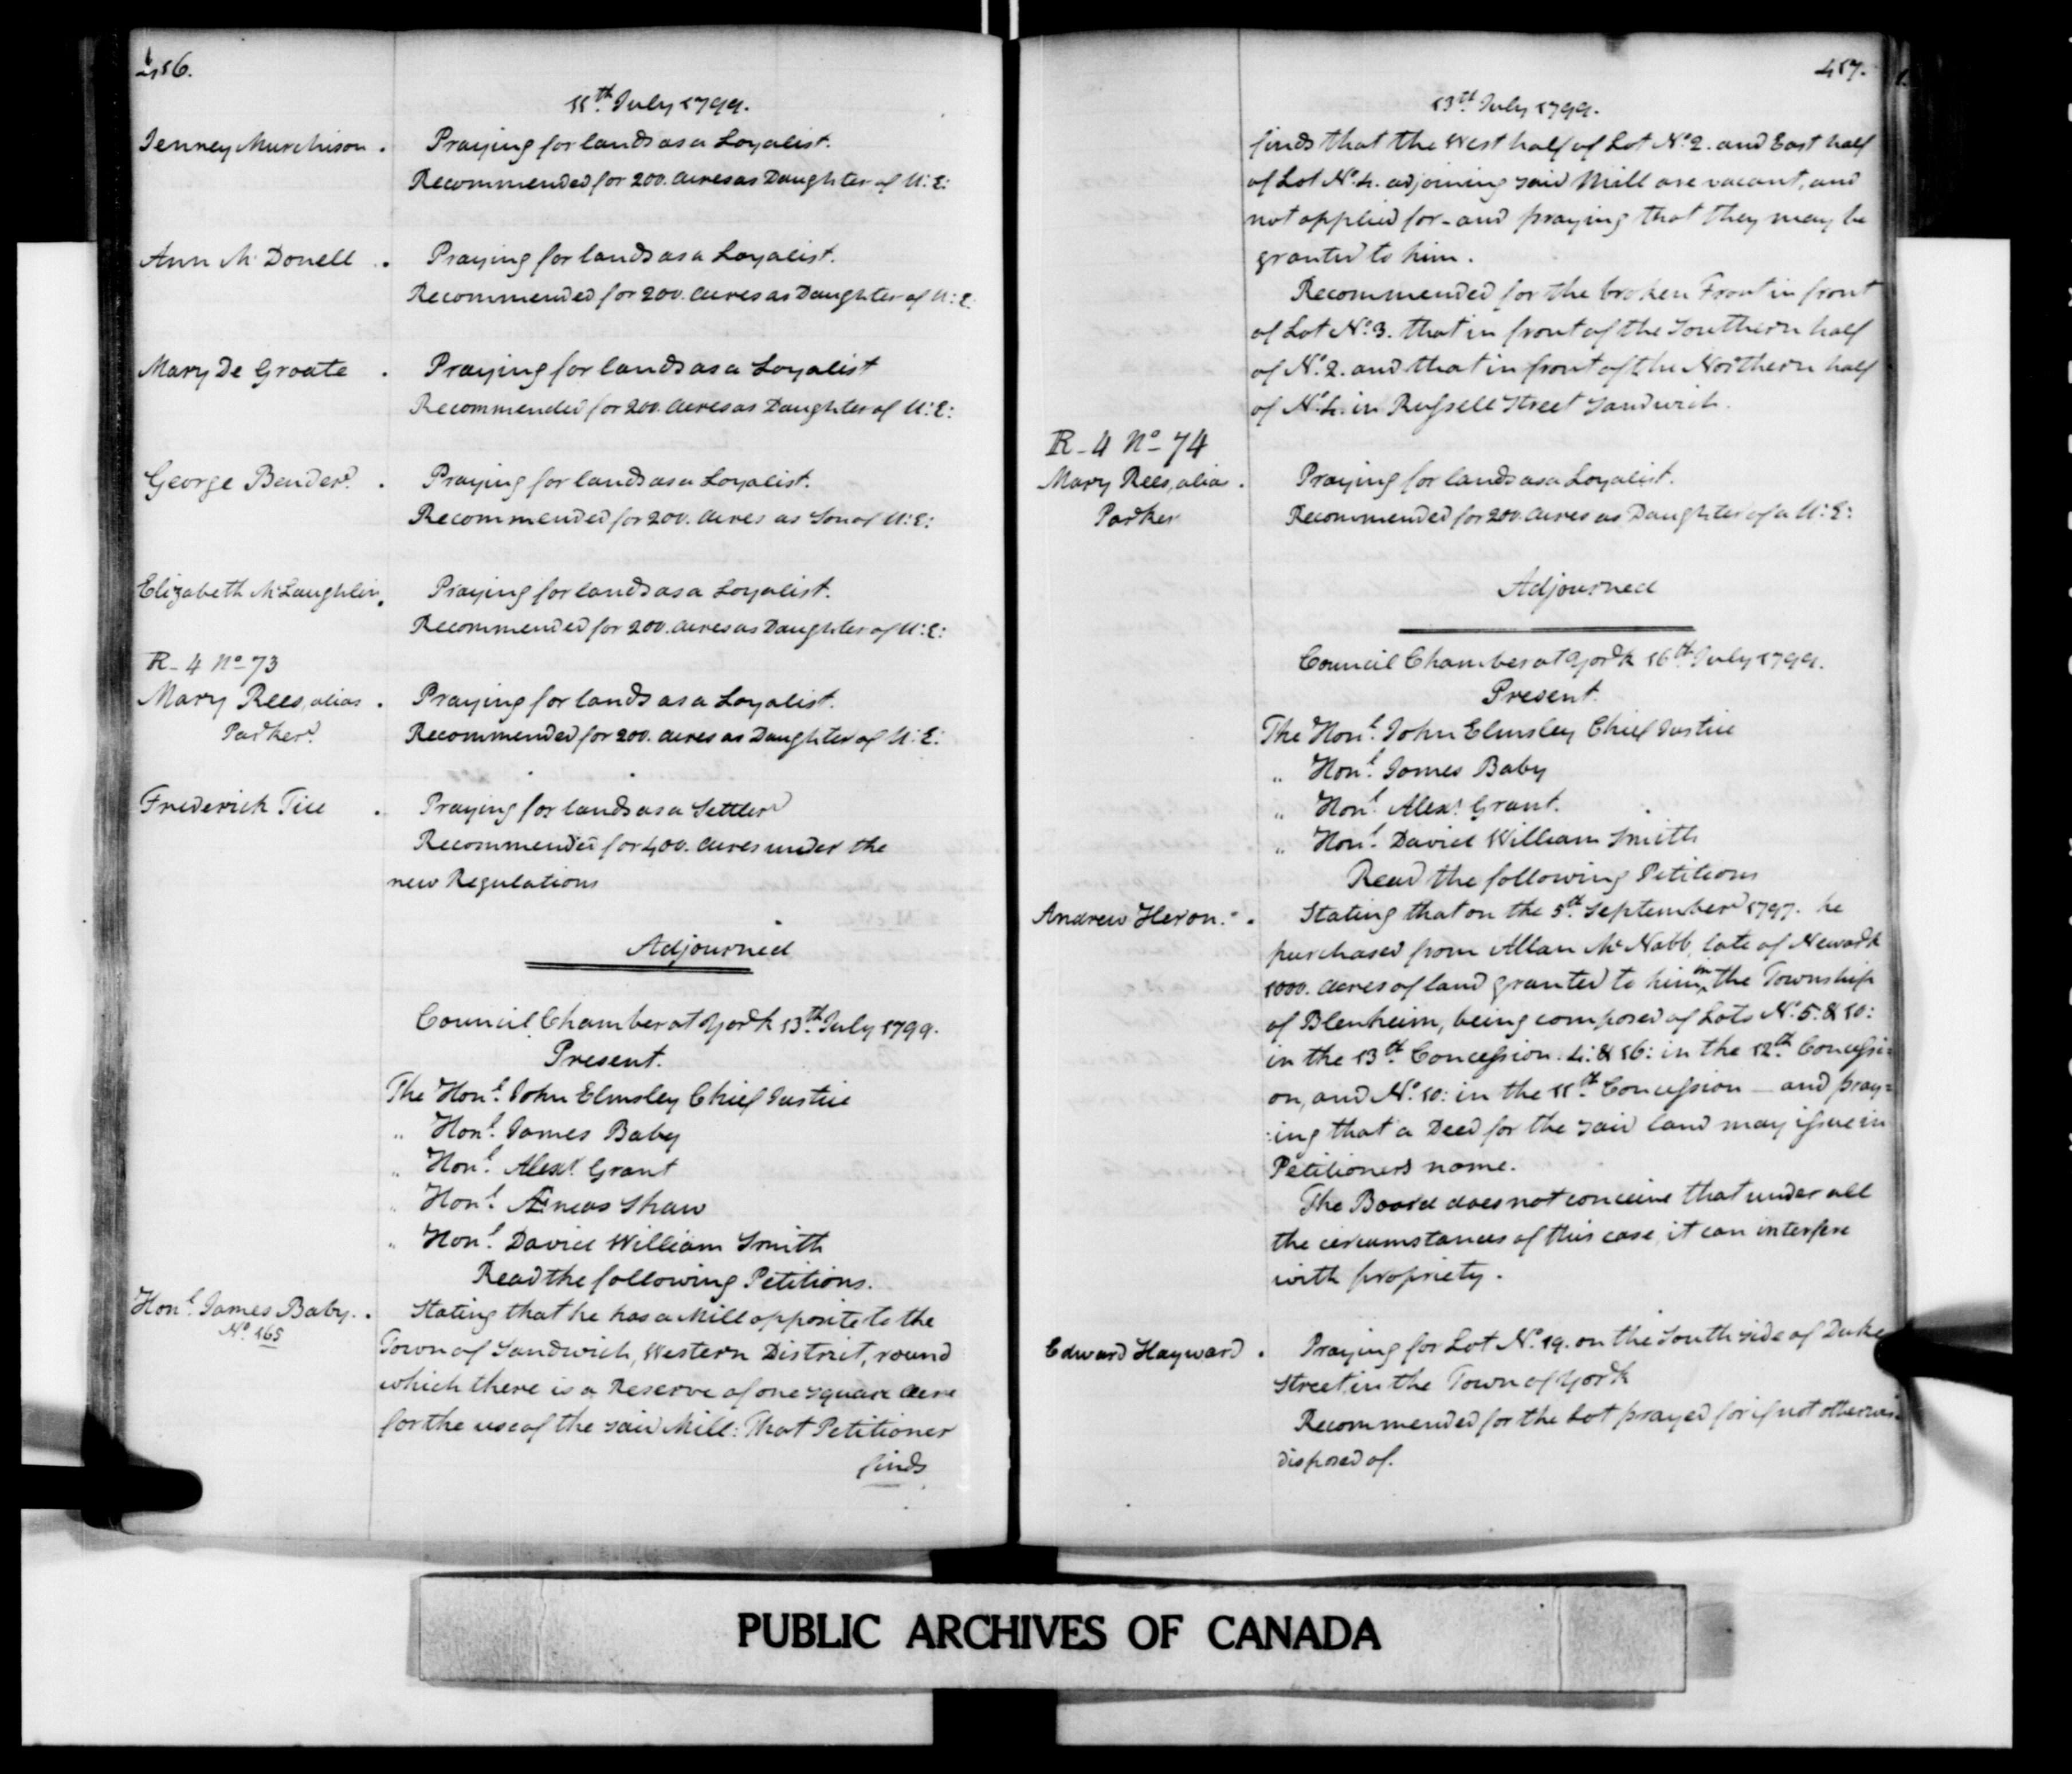 456.
11th July 1799.
Jenney Murchison . Praying for lands as a Loyalist.
Recommended for 200. Acres as Daughter of U:E:
Ann Mc Donell . Praying for lands as a Loyalist.
Recommended for 200. Acres as Daughter of U:E:
Mary De Groate . Praying for lands as a Loyalist
Recommended for 200. Acres as Daughter of U:E:
George Bender . Praying for lands as a Loyalist.
Recommended for 200. Acres as Son of U:E:
Elizabeth McLaughlin . Praying for lands as a Loyalist.
Recommended for 200. Acres as Daughter of U:E:
R-4 No 73
Mary Rees, alias . Praying for lands as a Loyalist.
Parker. Recommended for 200. acres as Daughter of U:E:
Frederick Tice . Praying for lands as a Settler
Recommended for 400. Acres under the
new Regulations
Adjourned
Council Chamber at York 13th July 1799.
Present.
The Honl. John Elmsley Chief Justice
" Honl. James Baby
" Honl. Alexr. Grant
" Honl. Æneas Shaw
" Honl. David William Smith
Read the following Petitions.
Honl. James Baby. . Stating that he has a Mill opposite to the
No 165
Town of Sandwich, Western District, round
which there is a Reserve of one square Acre
for the use of the said Mill: That Petitioner
finds
457.
13th July 1799.
finds that the West half of Lot No. 2. and East half
of Lot No. 4. adjoining said Mill are vacant, and
not applied for - and praying that they may be
granted to him.
Recommended for the broken Front in front
of Lot No. 3. that in front of the Southern half
of No. 2. and that in front of the Northern half
of No. 4. in Russell Street Sandwich.
R-4 No 74
Mary Rees, alias . Praying for lands as a Loyalist.
Parker Recommended for 200. Acres as Daughter of a U:E:
Adjourned
Council Chamber at York 16th July 1799.
Present.
The Honl. John Elmsley Chief Justice
" Honl. James Baby
" Honl. Alexr. Grant.
" Honl. David William Smith
Read the following Petitions
Andrew Heron. . Stating that on the 5th September 1797. he
purchased from Allan McNabb, late of Newark
1000. Acres of land granted to him in the Township
of Blenheim, being composed of Lots No. 5. & 10:
in the 13th Concession. 4: & 16: in the 12th Concessi=
on, and No. 10: in the 11th Concession - and pray=
:ing that a Deed for the said land may issue in
Petitioners name.
The Board does not conceive that under all
the circumstances of this case, it can interfere
with propriety.
Edward Hayward . Praying for Lot No. 19. on the South side of Duke
Street, in the Town of York
Recommended for the Lot prayed for if not otherwise
disposed of.
PUBLIC ARCHIVES OF CANADA